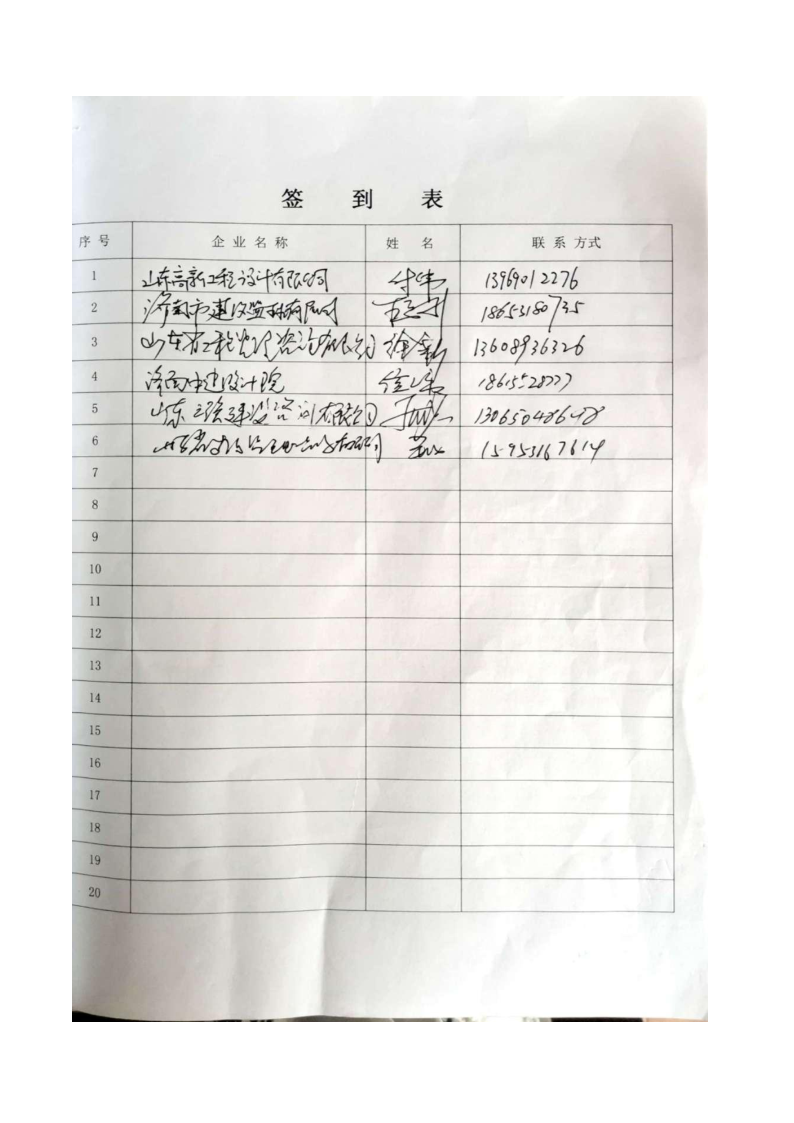 签到表
序号 企业名称 姓名 联系方式
1 山东高新工程设计有限公司 付伟 13969012276
2 济南市建设监理有限公司 18653180735
3 山东省工程监理咨询有限公司 徐 13608936326
4 济南中建设计院 徐峰 18615528777
5 山东 建设咨询有限公司 13065048648
6 有限公司 15953167614
7
8
9
10
11
12
13
14
15
16
17
18
19
20